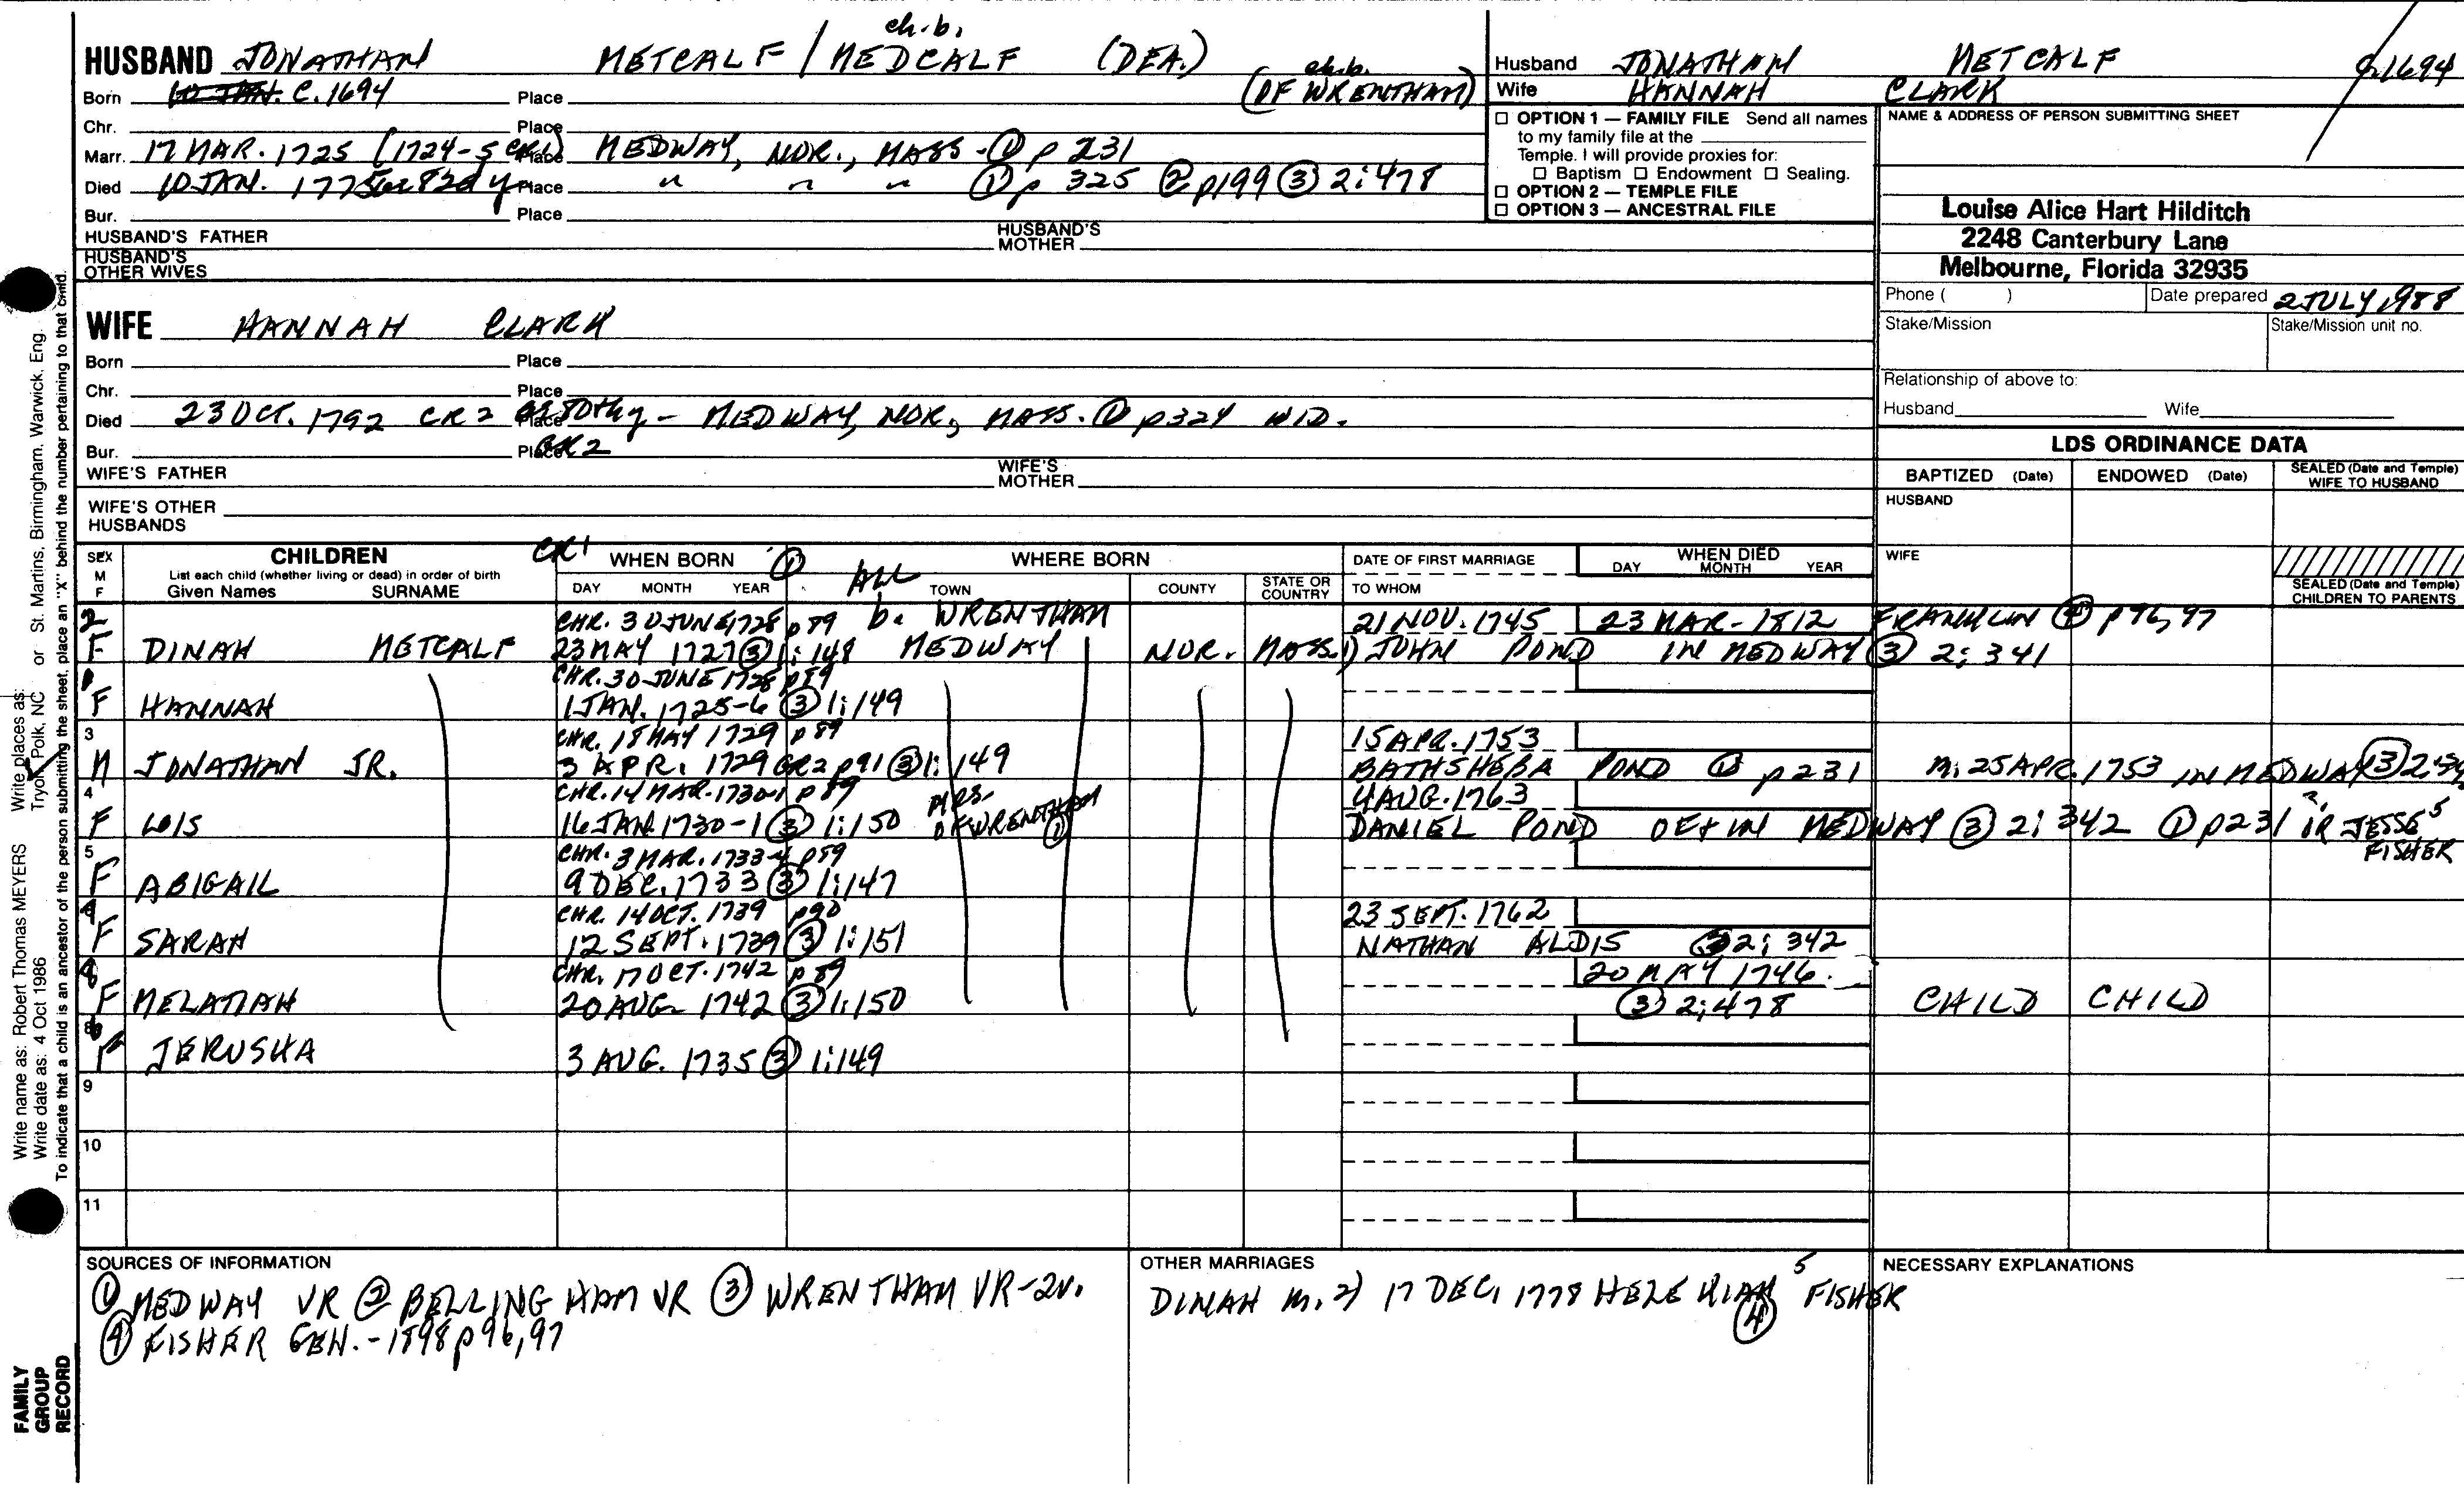 ch. b.
HUSBAND JONATHAN METCALF / MEDCALF (DEA.)
Born 10 JAN. C. 1694 Place ch.b. (OF WRENTHAM)
Chr. Place
Marr. 17 MAR. 1725 (1724-5 CR1) Place MEDWAY, NOR., MASS - ① p 231
Died 10 JAN. 1775 82d y Place " " " ① p 325 ② p199 ③ 2:478
Bur. Place
HUSBAND'S FATHER HUSBAND'S MOTHER
HUSBAND'S OTHER WIVES
WIFE HANNAH CLARK
Born Place
Chr. Place
Died 23 OCT. 1792 CR2 Place - MEDWAY, NOR, MASS. ① p324 WID.
Bur. Place GR2
WIFE'S FATHER WIFE'S MOTHER
WIFE'S OTHER HUSBANDS
Husband JONATHAN METCALF C. 1694
Wife HANNAH CLARK
□ OPTION 1 — FAMILY FILE Send all names
to my family file at the
Temple. I will provide proxies for:
□ Baptism □ Endowment □ Sealing.
□ OPTION 2 — TEMPLE FILE
□ OPTION 3 — ANCESTRAL FILE
NAME & ADDRESS OF PERSON SUBMITTING SHEET
Louise Alice Hart Hilditch
2248 Canterbury Lane
Melbourne, Florida 32935
Phone ( ) Date prepared 2 JULY 1988
Stake/Mission Stake/Mission unit no.
Relationship of above to:
Husband Wife
LDS ORDINANCE DATA
BAPTIZED (Date) ENDOWED (Date) SEALED (Date and Temple) WIFE TO HUSBAND
HUSBAND
WIFE
SEALED (Date and Temple) CHILDREN TO PARENTS
SEX M F CHILDREN CR1 WHEN BORN ① WHERE BORN DATE OF FIRST MARRIAGE WHEN DIED
List each child (whether living or dead) in order of birth
Given Names SURNAME DAY MONTH YEAR ALL TOWN COUNTY STATE OR COUNTRY TO WHOM DAY MONTH YEAR
2 CHR. 30 JUNE 1728 p 89 b. WRENTHAM 21 NOV. 1745 23 MAR - 1812 FRANKLIN ④ p 96, 97
F DINAH METCALF 23 MAY 1727 ③ 1:148 MEDWAY NOR. MASS. 1) JOHN POND IN MEDWAY ③ 2:341
1 CHR. 30 JUNE 1728 p 89
F HANNAH 1 JAN. 1725-6 ③ 1:149
3 CHR. 18 MAY 1729 p 89 15 APR. 1753
M JONATHAN JR. 3 APR. 1729 GR2 p91 ③ 1:149 BATHSHEBA POND ① p 231 m. 25 APR. 1753 IN MEDWAY ③
4 CHR. 14 MAR. 1730-1 p 89 MRS. 4 AUG. 1763
F LOIS 16 JAN. 1730-1 ③ 1:150 OF WRENTHAM ① DANIEL POND OF & IN MEDWAY ③ 2:342 ① p231 2. OR JESSE 5 FISHER
5 CHR. 3 MAR. 1733-4 p 89
F ABIGAIL 9 DEC. 1733 ③ 1:147
CHR. 14 OCT. 1739 p90 23 SEPT. 1762
F SARAH 12 SEPT. 1739 ③ 1:151 NATHAN ALDIS ③ 2:342
CHR. 17 OCT. 1742 p 89 20 MAY 1746
F MELATIAH 20 AUG. 1742 ③ 1:150 ③ 2:478 CHILD CHILD
F JERUSHA 3 AUG. 1735 ③ 1:149
9
10
11
SOURCES OF INFORMATION
① MEDWAY VR ② BELLINGHAM VR ③ WRENTHAM VR-2v.
④ FISHER GEN. - 1898 p96,97
OTHER MARRIAGES
DINAH m. 2) 17 DEC. 1778 HEZEKIAH 5 FISHER
④
NECESSARY EXPLANATIONS
Write name as: Robert Thomas MEYERS Write places as: Tryon, Polk, NC or St. Martins, Birmingham, Warwick, Eng.
Write date as: 4 Oct 1986
To indicate that a child is an ancestor of the person submitting the sheet, place an "X" behind the number pertaining to that child.
FAMILY
GROUP
RECORD